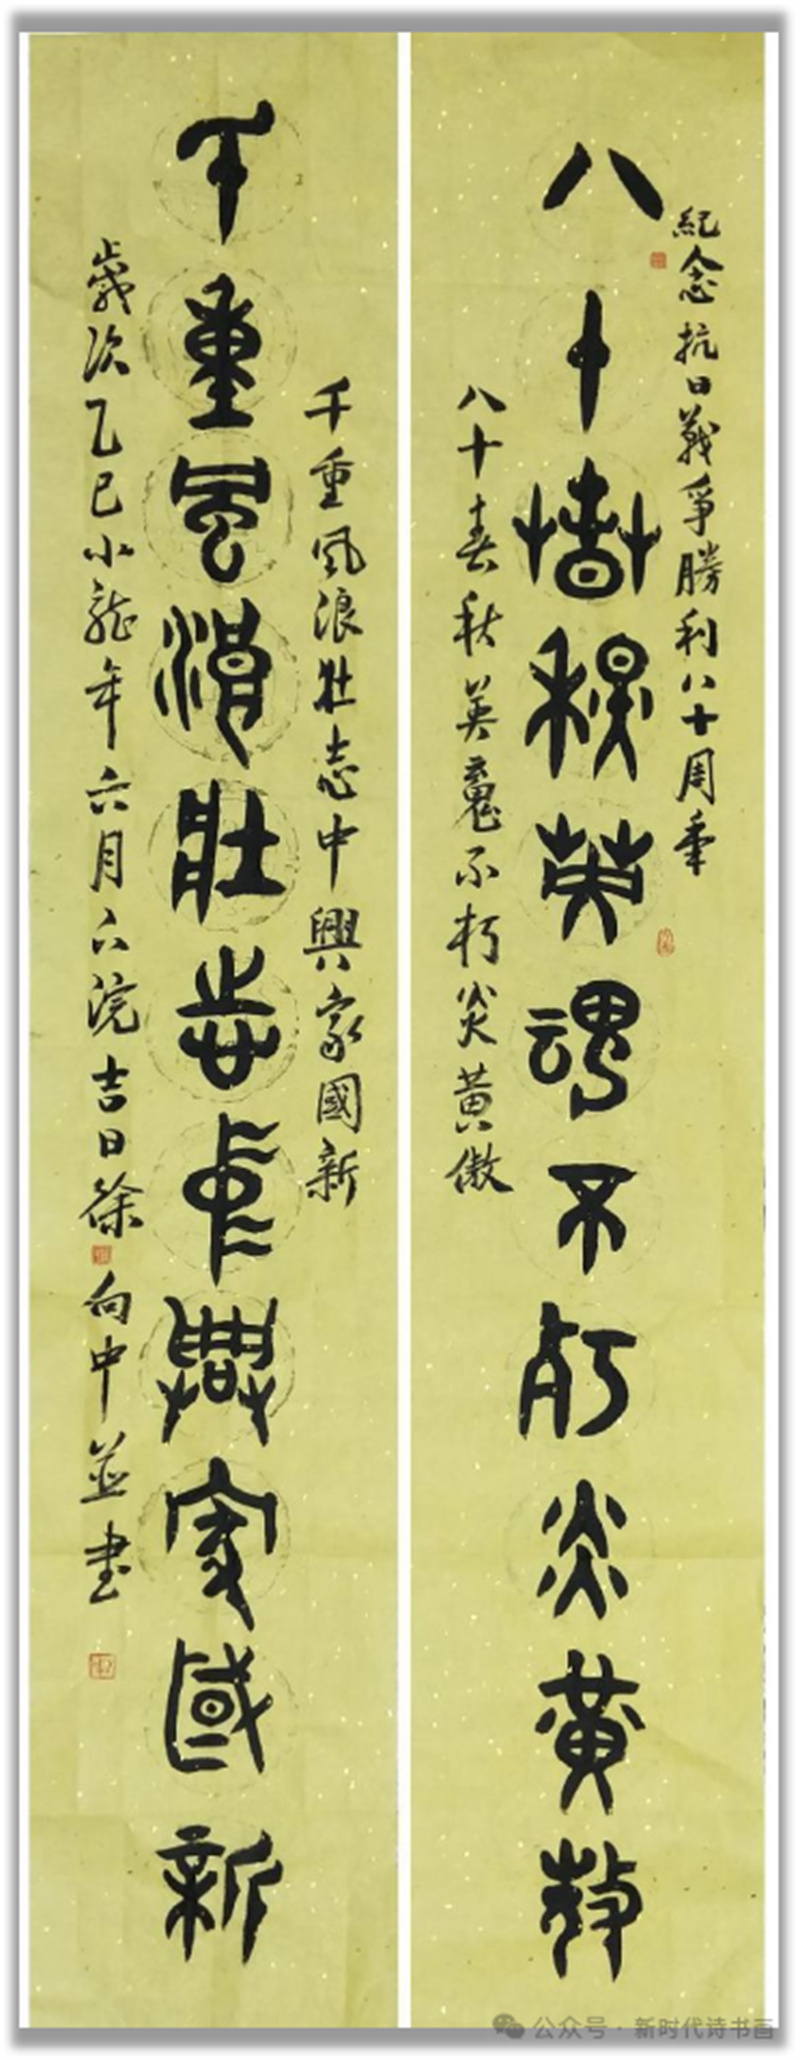 紀念抗日戰爭勝利八十周年
八十春秋英魂不朽炎黃傲
八十春秋英魂不朽炎黃傲
千重風浪壯志中興家國新
千重風浪壯志中興家國新
歲次乙巳小龍年六月六浣吉日徐向中並書
公众号·新时代诗书画